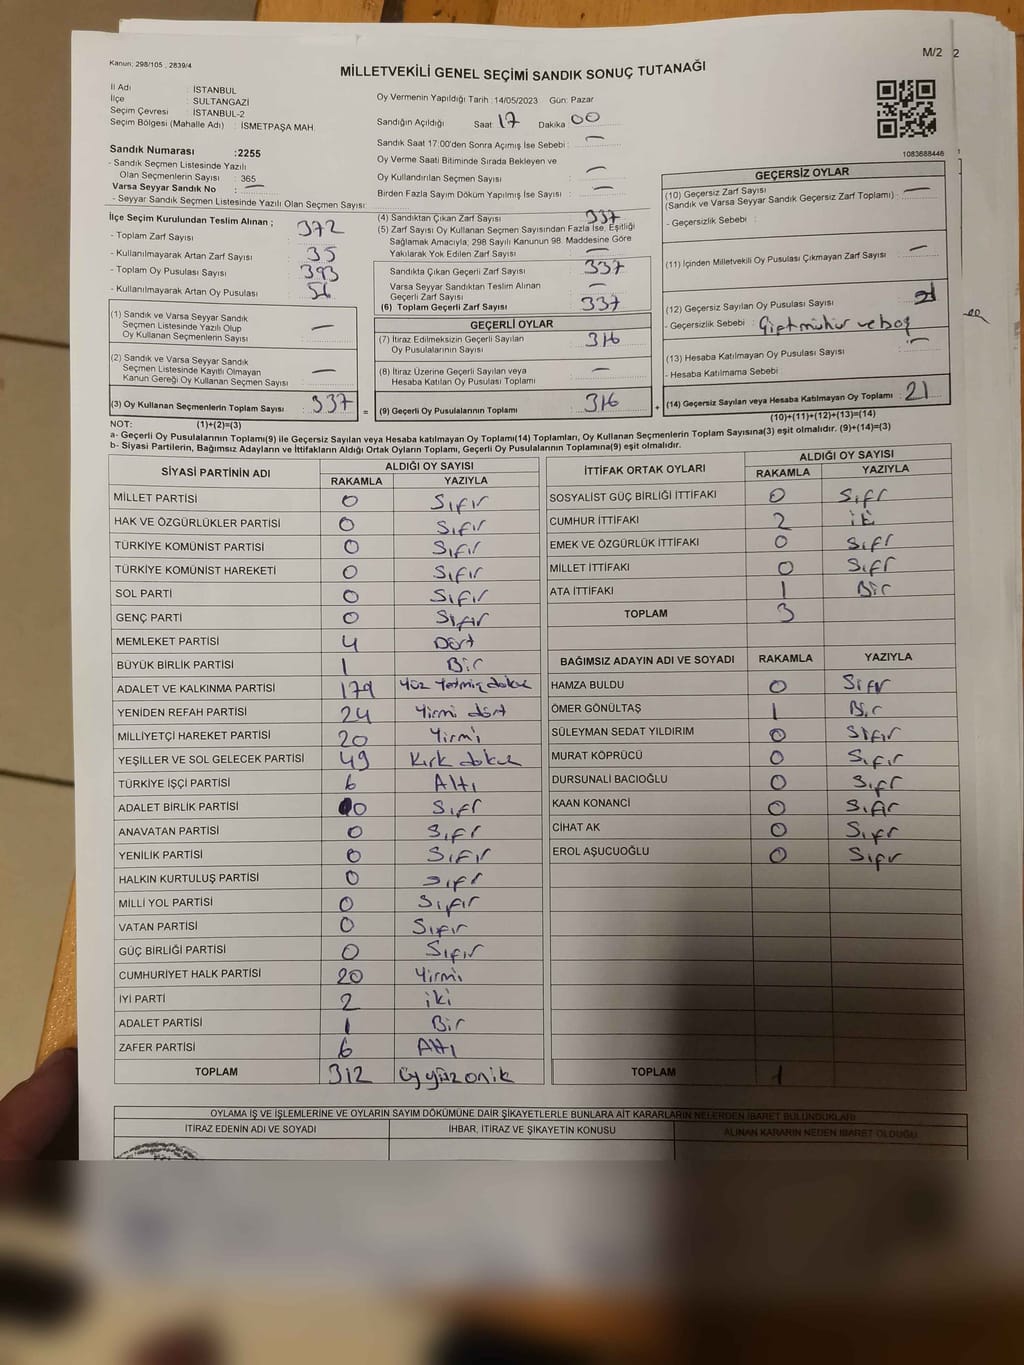 Kanun; 298/105 , 2839/4
M/2 2
MİLLETVEKİLİ GENEL SEÇİMİ SANDIK SONUÇ TUTANAĞI
İl Adı : İSTANBUL
İlçe : SULTANGAZİ
Seçim Çevresi : İSTANBUL-2
Seçim Bölgesi (Mahalle Adı) : İSMETPAŞA MAH.
Oy Vermenin Yapıldığı Tarih : 14/05/2023 Gün: Pazar
Sandığın Açıldığı Saat 17 Dakika 00
Sandık Saat 17:00'den Sonra Açılmış İse Sebebi : —
Oy Verme Saati Bitiminde Sırada Bekleyen ve
Oy Kullandırılan Seçmen Sayısı : —
Birden Fazla Sayım Döküm Yapılmış İse Sayısı : —
1083688446
Sandık Numarası :2255
- Sandık Seçmen Listesinde Yazılı
Olan Seçmenlerin Sayısı : 365
Varsa Seyyar Sandık No : —
- Seyyar Sandık Seçmen Listesinde Yazılı Olan Seçmen Sayısı:
İlçe Seçim Kurulundan Teslim Alınan ;
- Toplam Zarf Sayısı : 372
- Kullanılmayarak Artan Zarf Sayısı : 35
- Toplam Oy Pusulası Sayısı : 393
- Kullanılmayarak Artan Oy Pusulası : 56
(1) Sandık ve Varsa Seyyar Sandık
Seçmen Listesinde Yazılı Olup
Oy Kullanan Seçmenlerin Sayısı : —
(2) Sandık ve Varsa Seyyar Sandık
Seçmen Listesinde Kayıtlı Olmayan
Kanun Gereği Oy Kullanan Seçmen Sayısı : —
(3) Oy Kullanan Seçmenlerin Toplam Sayısı : 337 =
(4) Sandıktan Çıkan Zarf Sayısı : 337
(5) Zarf Sayısı Oy Kullanan Seçmen Sayısından Fazla İse, Eşitliği
Sağlamak Amacıyla; 298 Sayılı Kanunun 98. Maddesine Göre
Yakılarak Yok Edilen Zarf Sayısı : —
Sandıkta Çıkan Geçerli Zarf Sayısı : 337
Varsa Seyyar Sandıktan Teslim Alınan
Geçerli Zarf Sayısı : —
(6) Toplam Geçerli Zarf Sayısı : 337
GEÇERLİ OYLAR
(7) İtiraz Edilmeksizin Geçerli Sayılan
Oy Pusulalarının Sayısı : 316
(8) İtiraz Üzerine Geçerli Sayılan veya
Hesaba Katılan Oy Pusulası Toplamı : —
(9) Geçerli Oy Pusulalarının Toplamı : 316 +
GEÇERSİZ OYLAR
(10) Geçersiz Zarf Sayısı : —
(Sandık ve Varsa Seyyar Sandık Geçersiz Zarf Toplamı)
- Geçersizlik Sebebi :
(11) İçinden Milletvekili Oy Pusulası Çıkmayan Zarf Sayısı : —
(12) Geçersiz Sayılan Oy Pusulası Sayısı :
- Geçersizlik Sebebi : Çift mühür ve boş
(13) Hesaba Katılmayan Oy Pusulası Sayısı : —
- Hesaba Katılmama Sebebi :
(14) Geçersiz Sayılan veya Hesaba Katılmayan Oy Toplamı : 21
(10)+(11)+(12)+(13)=(14)
NOT: (1)+(2)=(3)
a- Geçerli Oy Pusulalarının Toplamı(9) ile Geçersiz Sayılan veya Hesaba katılmayan Oy Toplamı(14) Toplamları, Oy Kullanan Seçmenlerin Toplam Sayısına(3) eşit olmalıdır. (9)+(14)=(3)
b- Siyasi Partilerin, Bağımsız Adayların ve İttifakların Aldığı Ortak Oyların Toplamı, Geçerli Oy Pusulalarının Toplamına(9) eşit olmalıdır.
SİYASİ PARTİNİN ADI ALDIĞI OY SAYISI
RAKAMLA YAZIYLA
MİLLET PARTİSİ 0 Sıfır
HAK VE ÖZGÜRLÜKLER PARTİSİ 0 Sıfır
TÜRKİYE KOMÜNİST PARTİSİ 0 Sıfır
TÜRKİYE KOMÜNİST HAREKETİ 0 Sıfır
SOL PARTİ 0 Sıfır
GENÇ PARTİ 0 Sıfır
MEMLEKET PARTİSİ 4 Dört
BÜYÜK BİRLİK PARTİSİ 1 Bir
ADALET VE KALKINMA PARTİSİ 179 Yüz Yetmiş dokuz
YENİDEN REFAH PARTİSİ 24 Yirmi dört
MİLLİYETÇİ HAREKET PARTİSİ 20 Yirmi
YEŞİLLER VE SOL GELECEK PARTİSİ 49 Kırk dokuz
TÜRKİYE İŞÇİ PARTİSİ 6 Altı
ADALET BİRLİK PARTİSİ 0 Sıfır
ANAVATAN PARTİSİ 0 Sıfır
YENİLİK PARTİSİ 0 Sıfır
HALKIN KURTULUŞ PARTİSİ 0 Sıfır
MİLLİ YOL PARTİSİ 0 Sıfır
VATAN PARTİSİ 0 Sıfır
GÜÇ BİRLİĞİ PARTİSİ 0 Sıfır
CUMHURİYET HALK PARTİSİ 20 Yirmi
İYİ PARTİ 2 iki
ADALET PARTİSİ 1 Bir
ZAFER PARTİSİ 6 Altı
TOPLAM 312 Üçyüzoniki
İTTİFAK ORTAK OYLARI ALDIĞI OY SAYISI
RAKAMLA YAZIYLA
SOSYALİST GÜÇ BİRLİĞİ İTTİFAKI 0 Sıfır
CUMHUR İTTİFAKI 2 iki
EMEK VE ÖZGÜRLÜK İTTİFAKI 0 Sıfır
MİLLET İTTİFAKI 0 Sıfır
ATA İTTİFAKI 1 Bir
TOPLAM 3
BAĞIMSIZ ADAYIN ADI VE SOYADI RAKAMLA YAZIYLA
HAMZA BULDU 0 Sıfır
ÖMER GÖNÜLTAŞ 1 Bir
SÜLEYMAN SEDAT YILDIRIM 0 Sıfır
MURAT KÖPRÜCÜ 0 Sıfır
DURSUNALİ BACIOĞLU 0 Sıfır
KAAN KONANCİ 0 Sıfır
CİHAT AK 0 Sıfır
EROL AŞUCUOĞLU 0 Sıfır
TOPLAM 1
OYLAMA İŞ VE İŞLEMLERİNE VE OYLARIN SAYIM DÖKÜMÜNE DAİR ŞİKAYETLERLE BUNLARA AİT KARARLARIN NELERDEN İBARET BULUNDUKLARI
İTİRAZ EDENİN ADI VE SOYADI İHBAR, İTİRAZ VE ŞİKAYETİN KONUSU ALINAN KARARIN NEDEN İBARET OLDUĞU